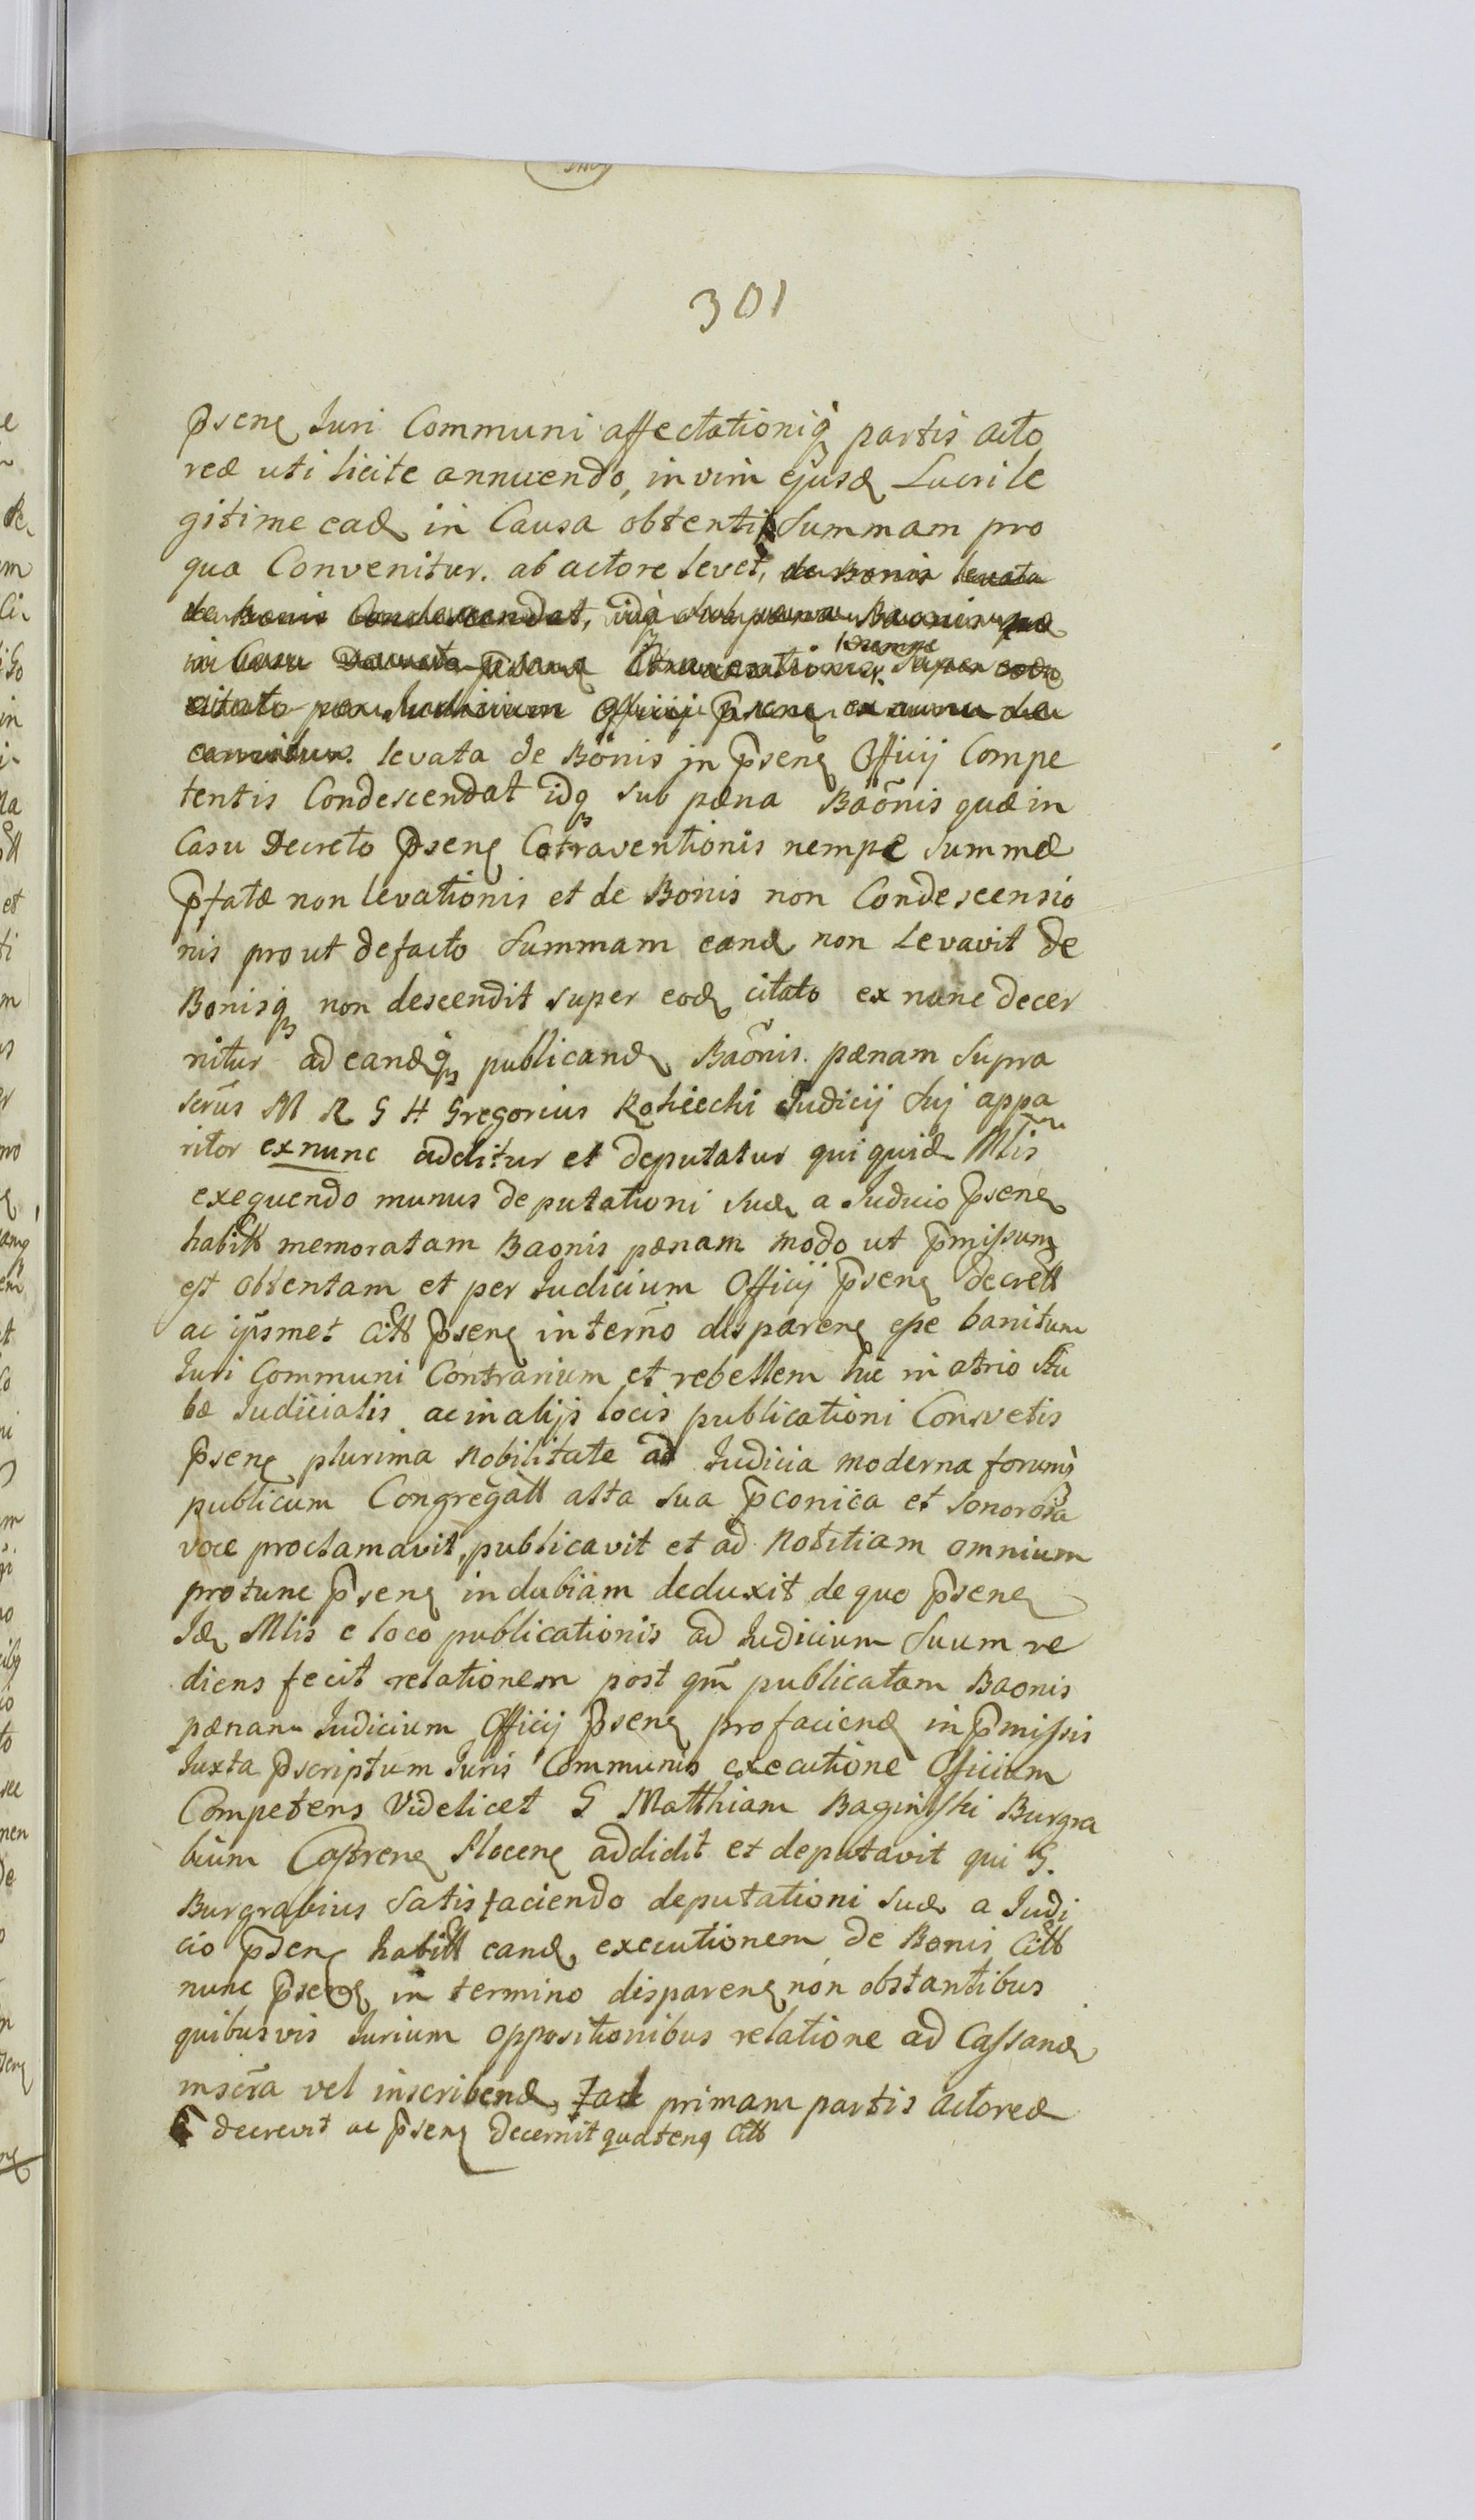 301
p̄senę Juri Communi affectationiq̀ partis acto
reæ uti licite annuendo, in vim ejusd Lucri le
gitime ead in Causa obtenti Summam pro
qua Convenitur. ab actore levet, de Bonis levata
de Bonis Condescendat, idq̀ sub pœna Baonis quæ
in Casu Decreto p̄senę Contraventionis nempe super eod
citato per Judicium Officij p̄senę ex nunc de
cernitur. levata de Bonis in p̄senę Officij Compe
tentis Condescendat idq sub pæna Baōnis quæ in
Casu Decreto p̄senę Cōtraventionis nempe summæ
p̄fatæ non levationis et de Bonis non Condescensio
nis prout defacto Summam eand non Levavit de
Bonisq non descendit super eod citato ex nunc decer
nitur ad eandq publicand Baōnis. pænam Supra
scrūs M R G H Gregorius Judicij Sui appa
ritor ex nunc additur et deputatur qui quid Mlis
exequendo munus deputationi suæ a Juducio p̄senę
habitt memoratam Baonis pænam modo ut p̄missum
est obtentam et per Judicium Officij p̄senę decrett
ac ipsmet Citt p̄senę in termō disparenę esse banitum
Juri Communi Contrarium et rebellem hic in atrio Stu
bæ Judicialis ac in alijs locis publicationi Consvetis
p̄senę plurima Nobilitate ad Judicia moderna forumq̀
publicum Congregatt alta sua p̄conica et sonorosa
voce proclamavit, publicavit et ad Notitiam omnium
protunc p̄senę indubiam deduxit de quo p̄senę
Id Mlis e loco publicationis ad Judicium Suum re
diens fecit relationem post qm̄ publicatam Baonis
pænam Judicium Officij p̄senę pro faciend in p̄missis
Juxta p̄scriptum Juris Communis executione Officium
Competens Videlicet G Matthiam Baginski Burgra
bium Castrenę Plocenę addidit et deputavit qui G.
Burgrabius Satisfaciendo deputationi suæ a Judi
cio p̄senę habitt eand executionem de Bonis Citt
nunc p̄senę in termino disparenę non obstantibus
quibusvis Jurium oppositionibus relatione ad Cassand
inscrā vel inscribend, ad primam partis actoreæ
decrevit ac p̄senę decernit quatenq Citt